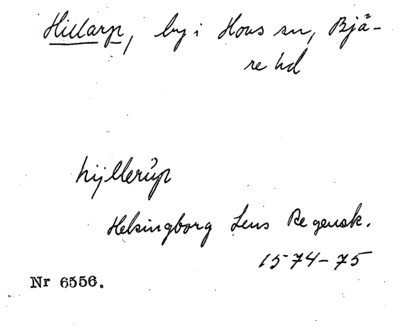 Hillarp, by i Hovs sn, Bjä-
re hd
hyllerup
Helsingborg Lens Regensk.
1574-75
Nr 6556.